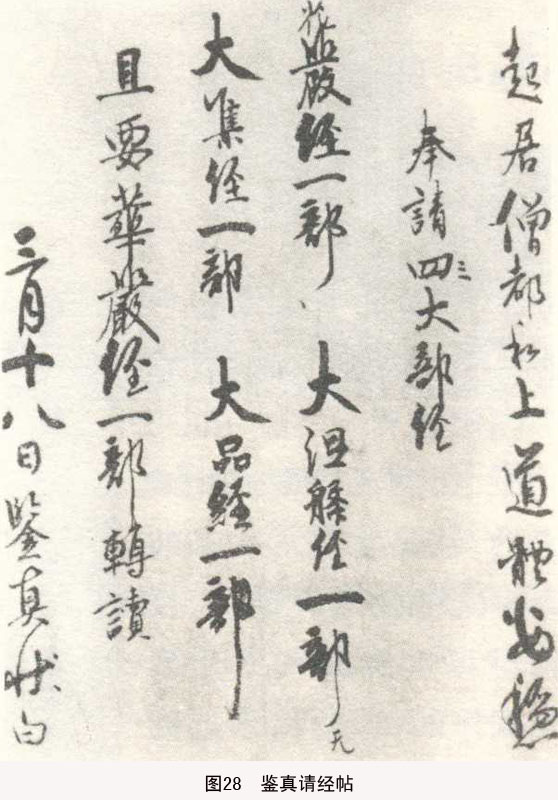 起居僧都和上道體安穩
奉請四三大部经
花嚴经一部 大涅槃经一部 无
大集经一部 大品經一部
且要華嚴经一部轉讀
三月十八日鑒真状白
图28 鉴真请经帖